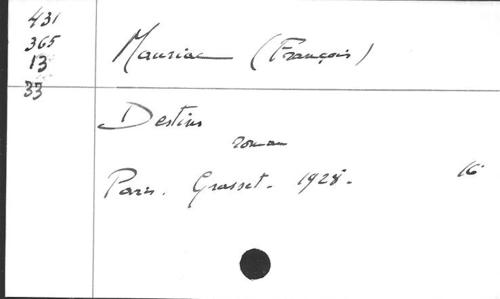 431
365
13
33
Mauriac (François)
Destins
roman
Paris. Grasset. 1928. 16